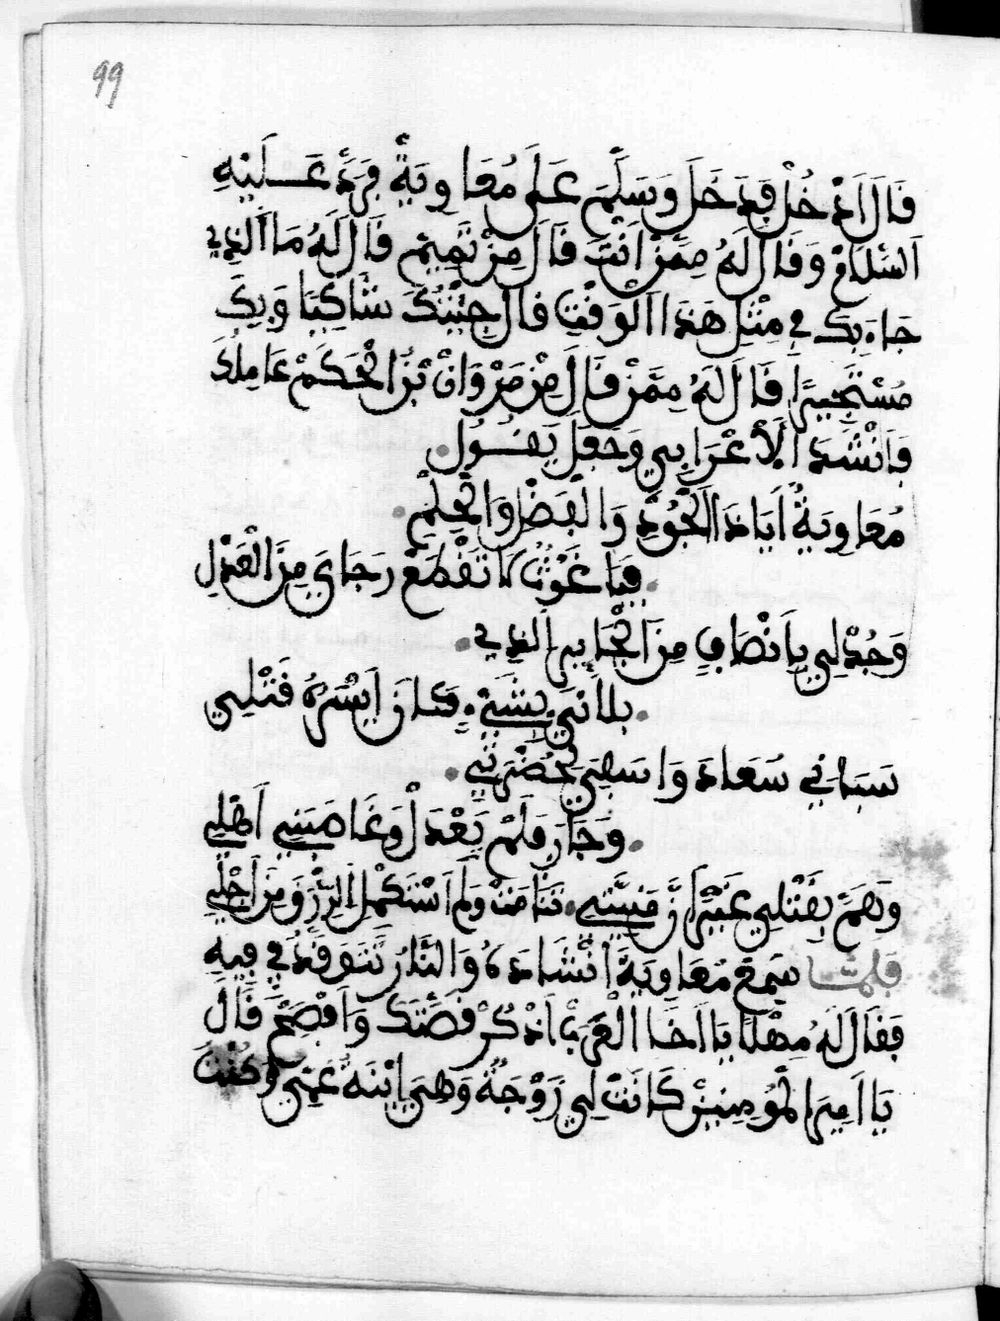 99
قَالَ اَدْخُلْ فَدَخَلَ وَسَلَّمَ عَلَى مُعَاوِيَةَ فَرَدَّ عَـلَيْهِ
اَلسَّلَامْ وَقَالَ لَهُ مِمَّنْ اَنْتَ قَالَ مِنْ تَمِيمْ قَالَ لَهُ مَا اَلذِي
جَاءَ بِكَ فِي مِثْلِ هَذَا اَلْوَقْتِ قَالَ جِئْتُكَ شَاكِيًا وَبِكَ
مُسْتَجِيرًا قَالَ لَهُ مِمَّنْ قَالَ مِنْ مَرْوَانْ بْنُ الْحَكَمْ عَامِلُكَ
وَاَنْشَدَ اَلْأَعْرَابِي وَجَعَلَ يَقُـولُ
مُعَاوِيَةُ اَيَا ذَا اَلْجُودِ وَالْفَضْلِ وَالْحِلْمْ
فَيَا غَوْثُ لَا تَقْطَعْ رَجَايَ مِنَ الْعَدْلِ
وَجُدْ لِي بِاَنْصَافٍ مِنَ الْجَايِرِ اَلذِي
بَلَانِي بِشَيْءٍ كَانَ اَيْسَرُهُ قَتْلِي
سَبَانِي سُعَادَ وَاسْهَى لِحُضْرَتِي
وَجَارَ وَلَمْ يَعْدَلْ وَغَاصَبَنِي اَهْلِي
وَهَمَّ بِقَتْلِي غَيْرَ اَنَّ مَنِيَّتِي تَنَاءَتْ وَلَمْ اَسْتَكْمِلِ الرِّزْقَ مِنْ اَجْلِي
فَلَمَّـا سَمِعَ مُعَاوِيَةَ اَنْشَادَهُ وَالنَّارُ تَتَوَقَّدُ فِي فِيهِ
فَقَالَ لَهُ مَهْلًا يَا اَخَا الْعَرَبْ اَذْكُرْ قِصَّتَكَ وَاَفْصَحْ قَالَ
يَا اَمِيرَ الْمُؤْمِنِينْ كَانَتْ لِي زَوْجَةٌ وَهِيَ اِبْنَةُ عَمِّي وَكُنْتُ